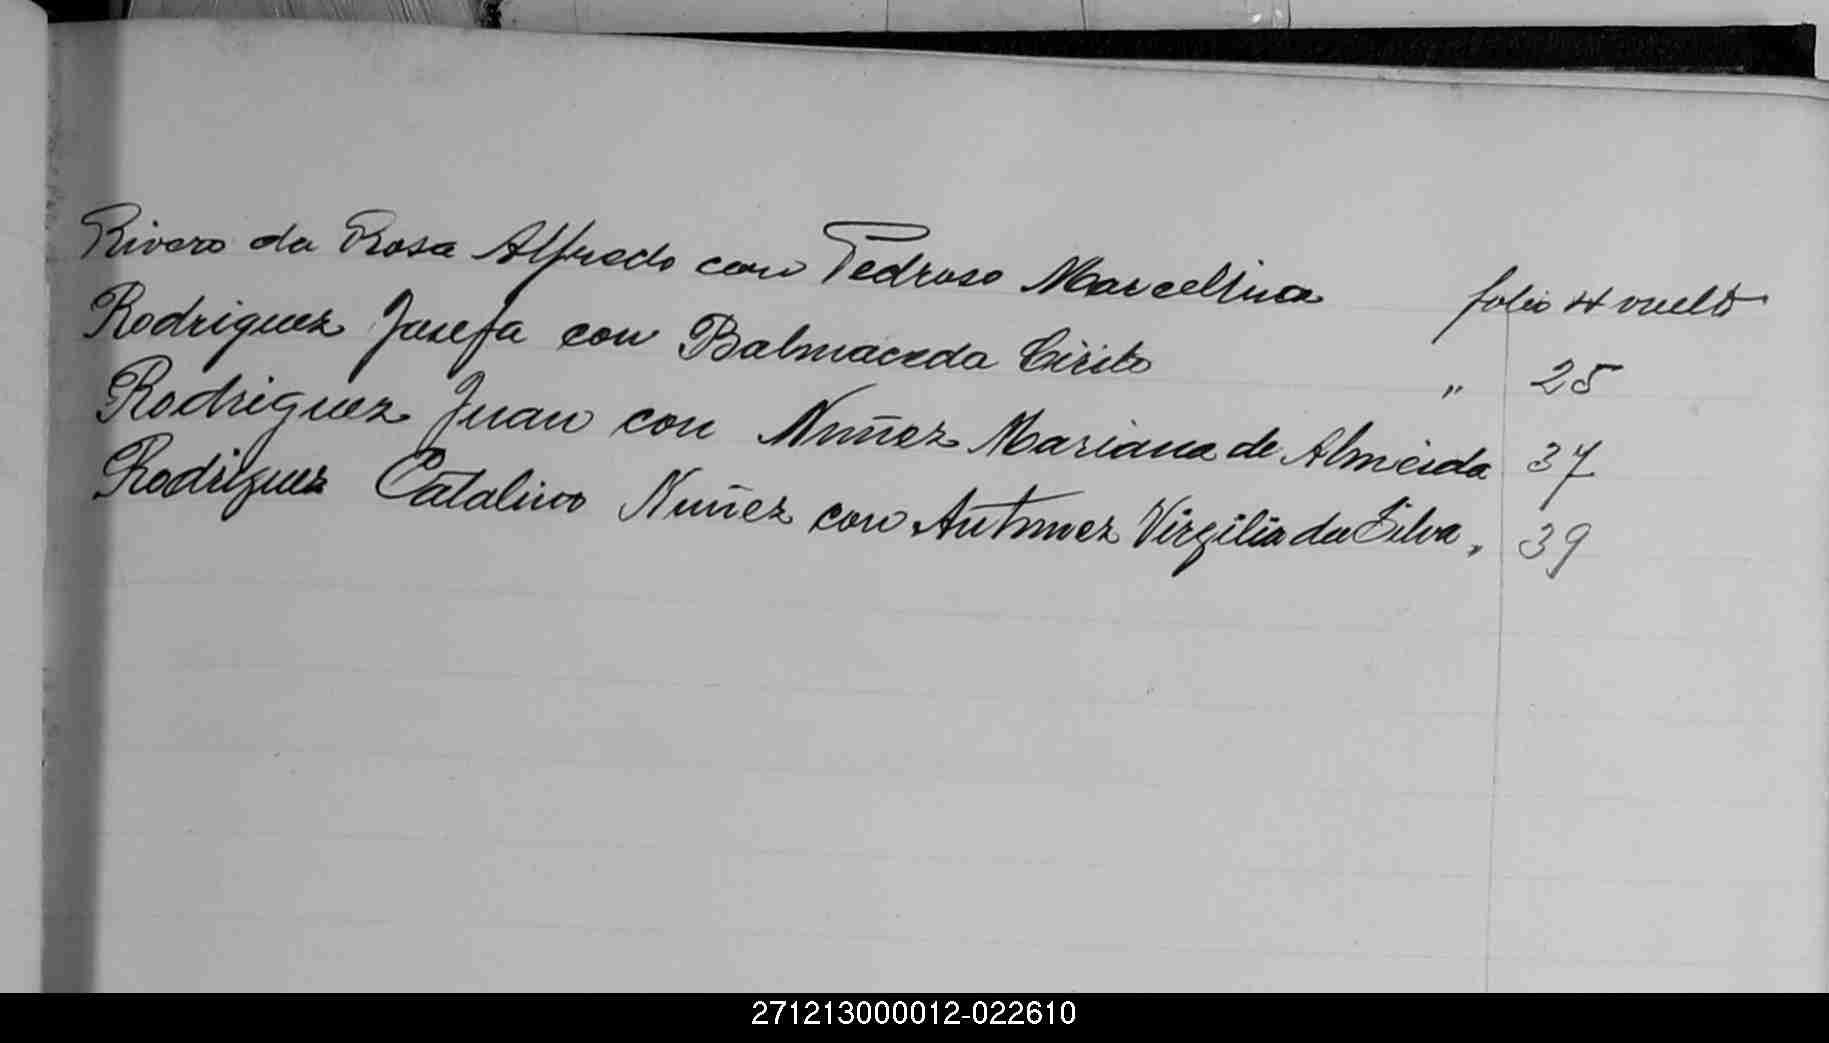 Rivero da Rosa Alfredo con Pedroso Marcelina folio 4 vuelto
Rodriguez Josefa con Balmaceda Cirilo " 25
Rodriguez Juan con Nuñez Mariana de Almeida 37
Rodriguez Catalino Nuñez con Antunez Virgilia da Silva " 39
271213000012-022610